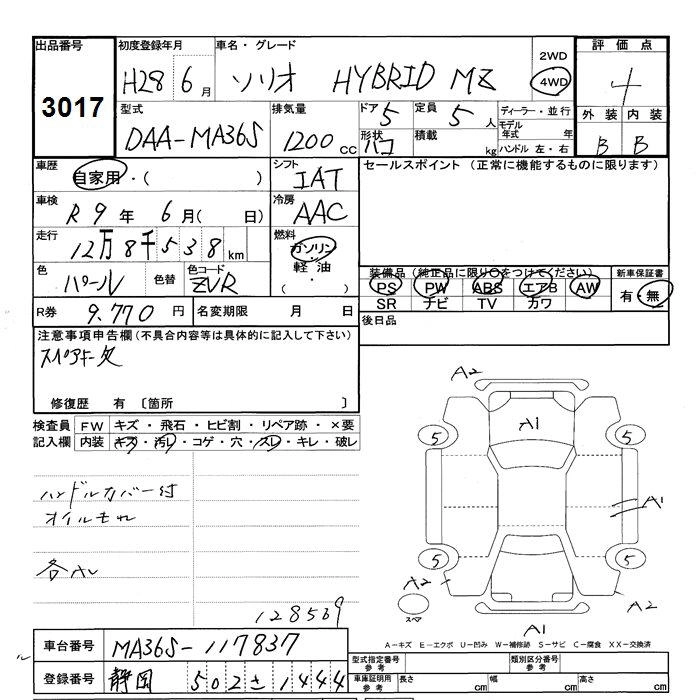 出品番号 初度登録年月 車名・グレード 評価点
3017 H28 6月 ソリオ HYBRID MZ 2WD 4WD 4
型式 排気量 ドア 定員 ディーラー・並行 外装 内装
DAA-MA36S 1200cc 5 5人 モデル年式 年 B B
形状 ハコ 積載 kg ハンドル 左・右
車歴 自家用・( ) シフト IAT セールスポイント (正常に機能するものに限ります)
車検 R9年 6月( 日) 冷房 AAC
走行 12万8千538km 燃料 ガソリン・軽油・( )
色 パール 色替 色コード ZVR
装備品 (純正品に限り○をつけてください) 新車保証書
PS PW ABS エアB AW 有・無
SR ナビ TV カワ
R券 9,770円 名変期限 月 日 後日品
注意事項申告欄(不具合内容等は具体的に記入して下さい)
スペアキー欠
修復歴 有 〔箇所 〕
検査員 FW キズ・飛石・ヒビ割・リペア跡・×要
記入欄 内装 キズ・汚レ・コゲ・穴・スレ・キレ・破レ
ハンドルカバー付
オイルモレ
各AL
128539
A2
A1
5 5
A1
5 5
A2 A2
スペア
A1
A-キズ E-エクボ U-凹み W-補修跡 S-サビ C-腐食 XX-交換済
車台番号 MA36S-117837
登録番号 静岡 502 さ 1444
型式指定番号 参考 類別区分番号 参考
車庫証明用 参考 長さ cm 幅 cm 高さ cm